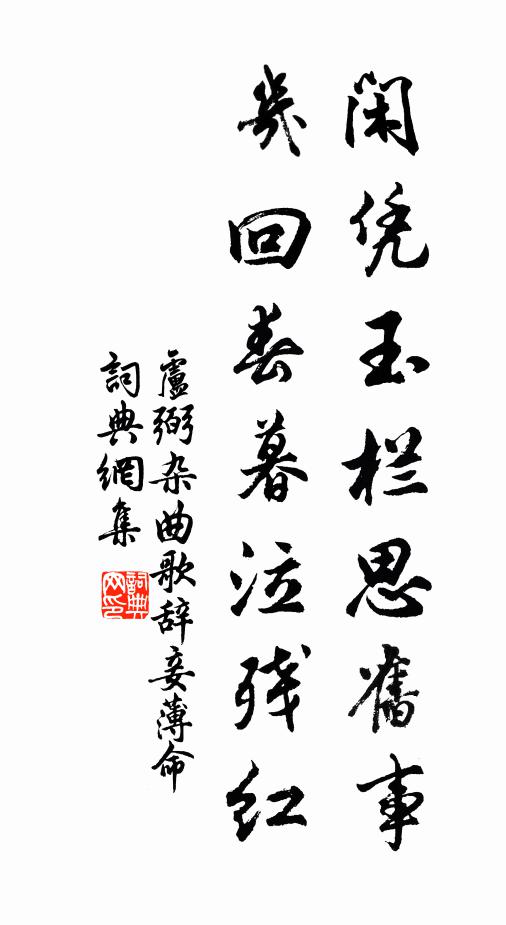 闲凭玉栏思舊事
幾回春暮泣残红
盧弼杂曲歌辞妾薄命
詞典網集
詞典
网印